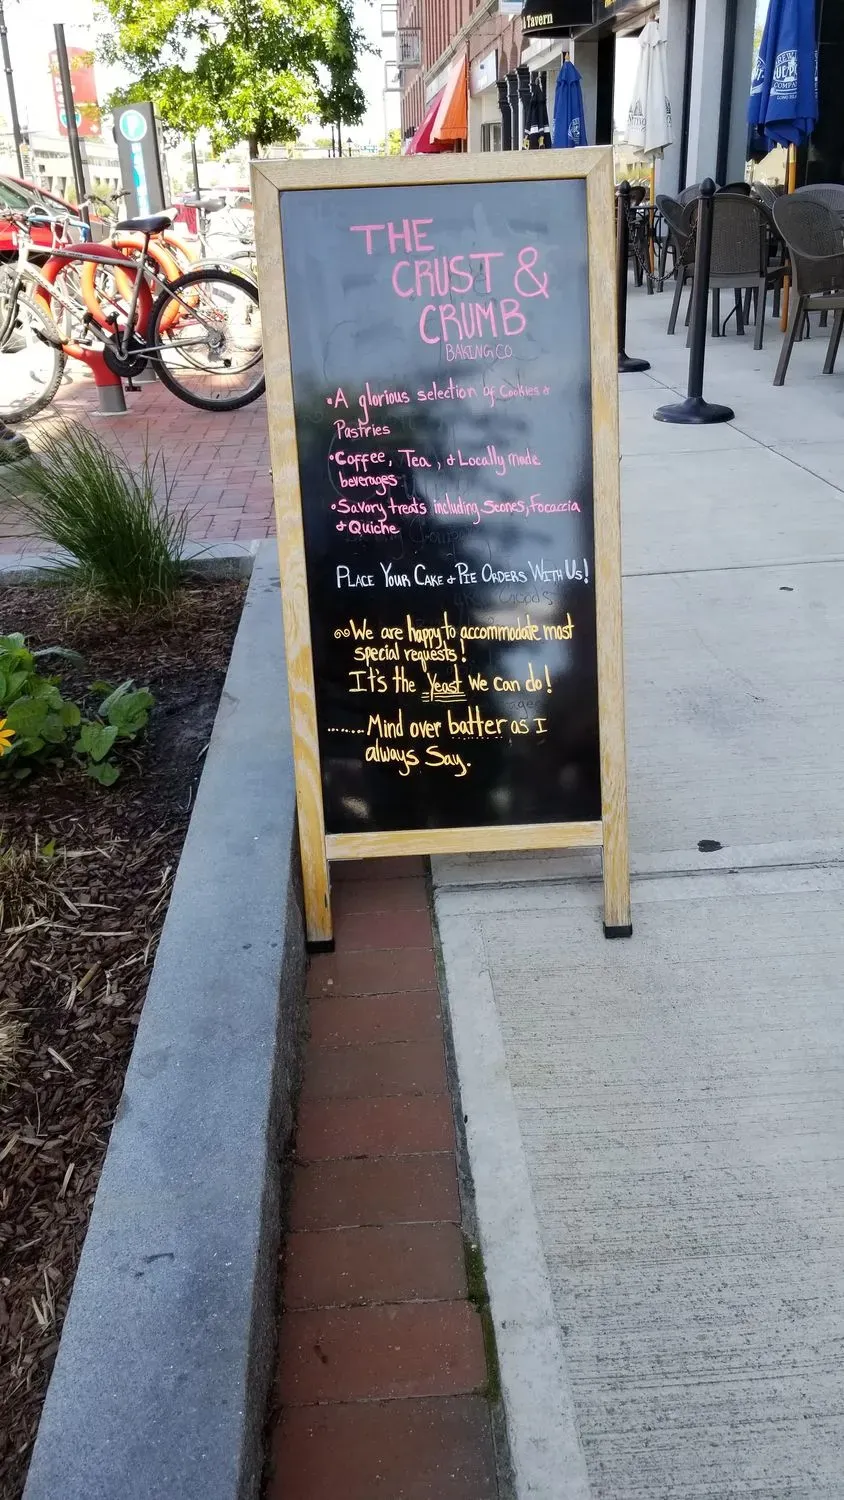 Tavern
THE
CRUST &
CRUMB
BAKING CO.
• A glorious selection of Cookies &
Pastries
• Coffee, Tea, & Locally made
beverages
• Savory treats including Scones, Focaccia
& Quiche
PLACE YOUR CAKE & PIE ORDERS WITH US!
We are happy to accommodate most
special requests!
It's the Yeast we can do!
........Mind over batter as I
always Say.